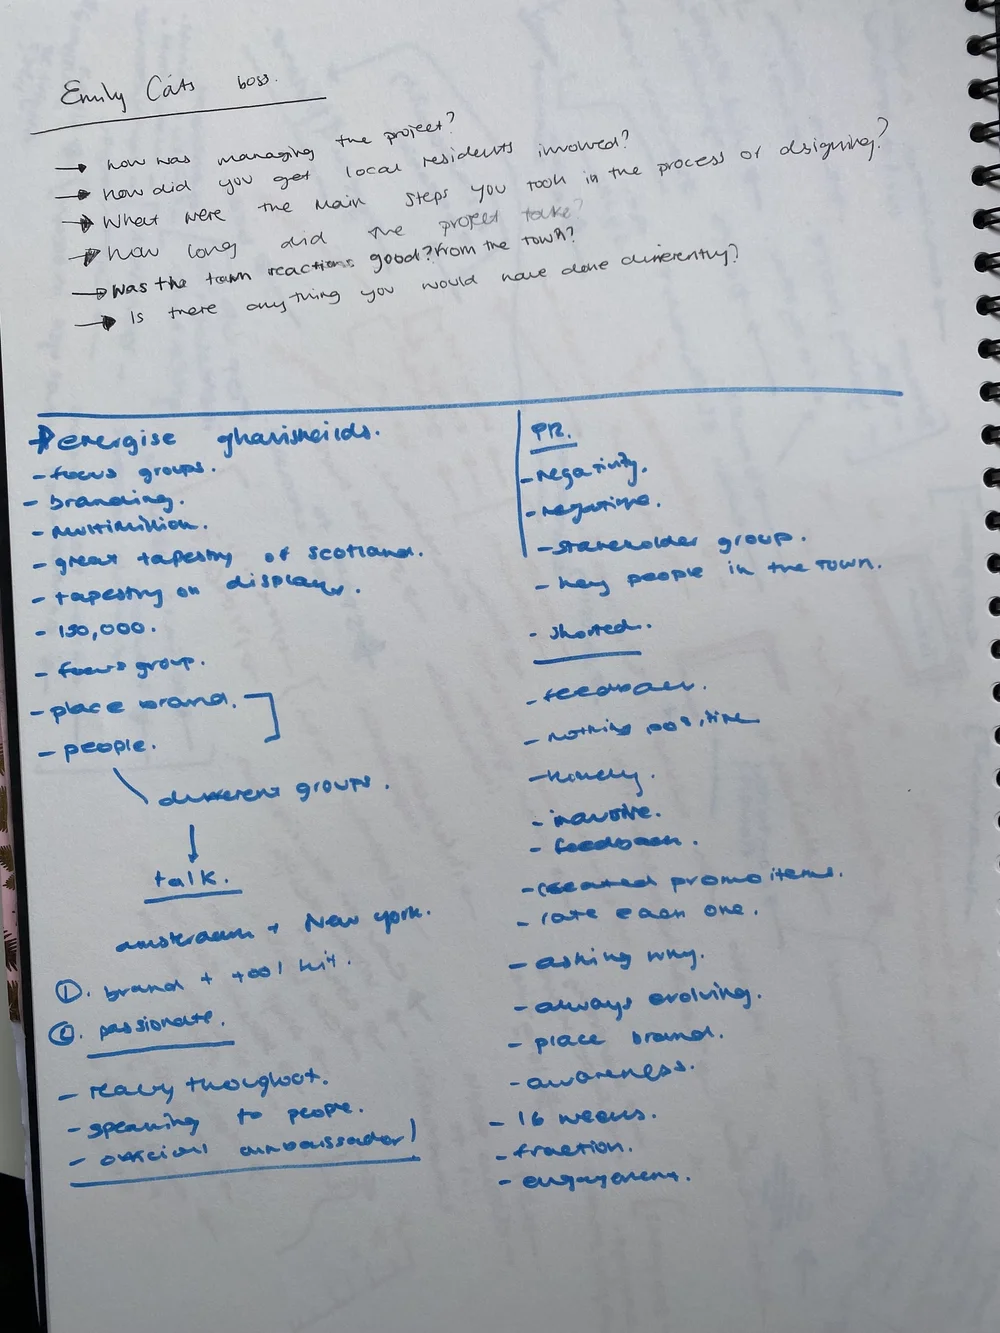 Emily Cats boss.
→ how was managing the project?
→ how did you get local residents involved?
→ What were the main steps you took in the process of designing?
→ how long did the project take?
→ Was the town reactions good? From the town?
→ Is there anything you would have done differently?
energise
- focus groups.
- branding.
- multimillion.
- great tapestry of scotland.
- tapestry on display.
- 150,000.
- focus group.
- place brand.
- people.
different groups.
talk.
amsterdam + New york.
①. brand + tool kit.
②. passionate.
- really
- speaking to people.
- official ambassador!
PR.
- negativity.
- negative.
- stakeholder group.
- key people in the town.
- shorted.
- feedback.
- nothing positive
-
-
- feedback.
- created promo items.
- rate each one.
- asking why.
- always evolving.
- place brand.
- awareness.
- 16 weeks.
- fraction.
- engagement.